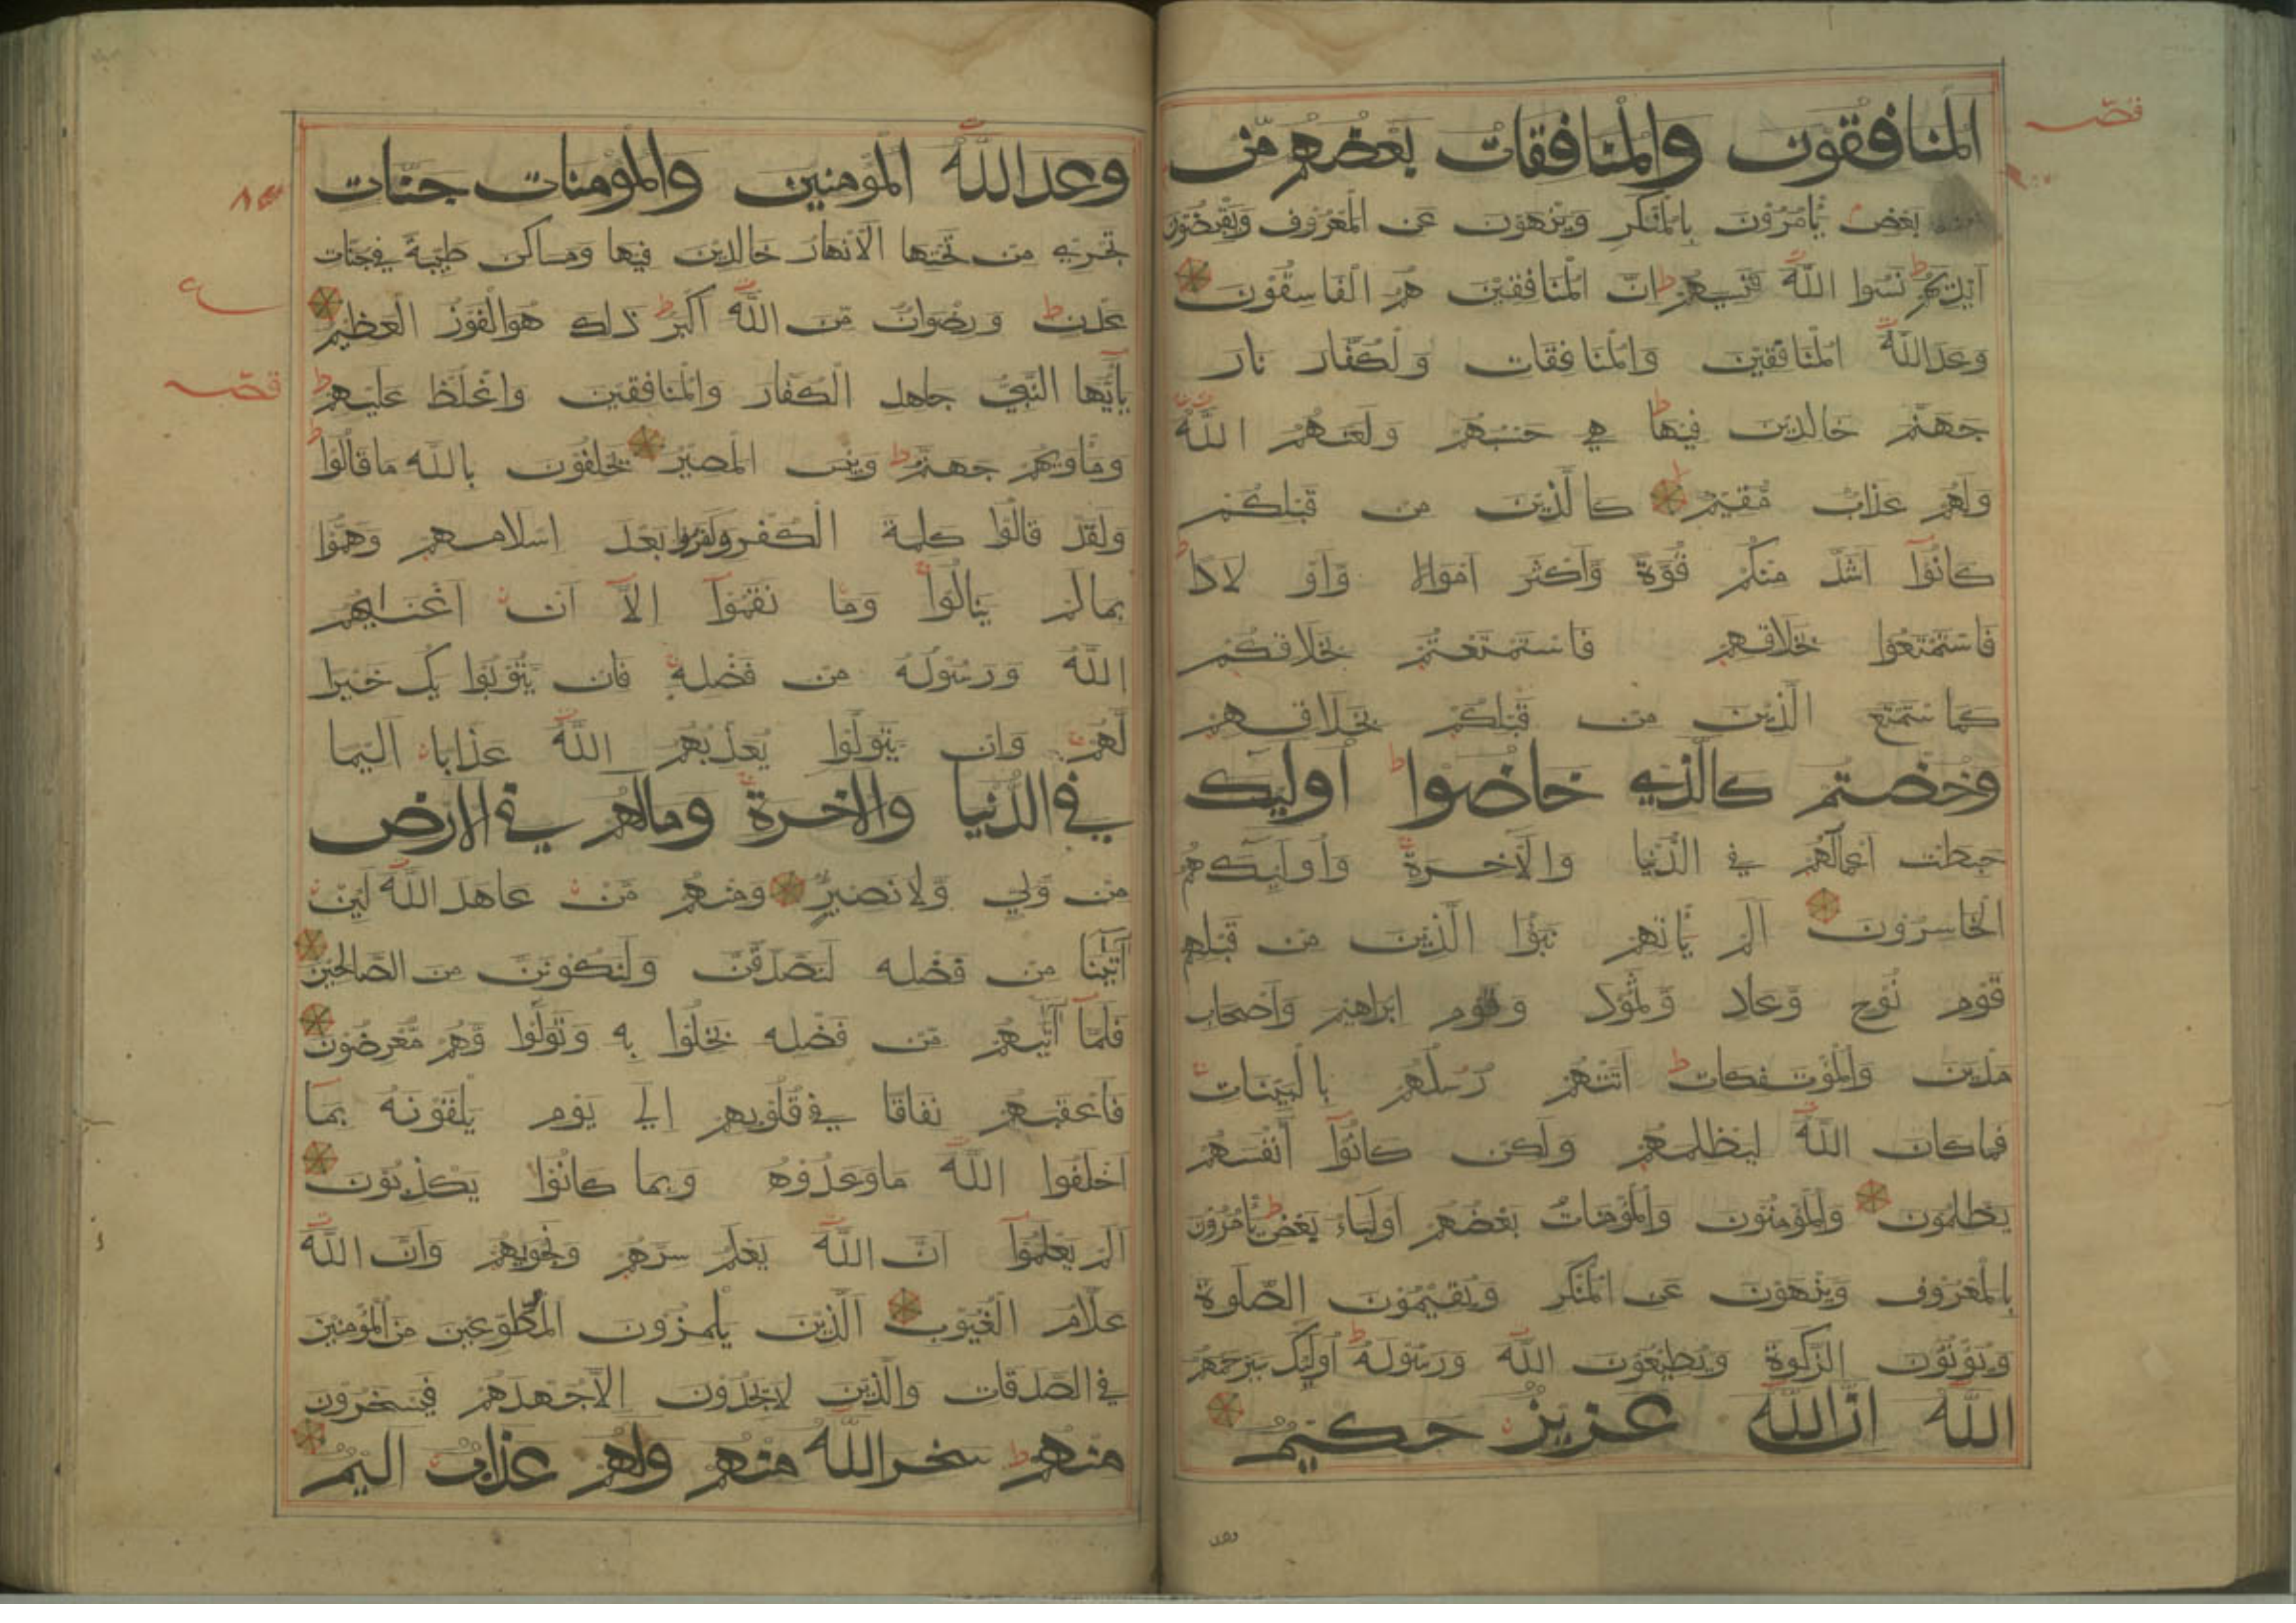 المنافقون والمنافقات بعضهم مّن
بعض يأمرون بالمنكر وينهون عن المعروف ويقبضون
ايديهم نسوا اللّٰه فنسيهم انّ المنافقين هم الفاسقون
وعد اللّٰه المنافقين والمنافقات ولكفّار نار
جهنّم خالدين فيها هي حسبهم ولعنهم اللّٰه
ولهم عذاب مّقيم كالّذين من قبلكم
كانوا اشدّ منكم قوّة وّاكثر اموالا وّاولادا
فاستمتعوا بخلاقهم فاستمتعتم بخلاقكم
كما ستمتع الّذين من قبلكم بخلاقهم
وخضتم كالّذي خاضوا اوليك
حبطت اعمالهم في الدّنيا والاخرة واوليك هم
الخاسرون الم يأتهم نبؤا الّذين من قبلهم
قوم نوح وّعاد وّثمود وقوم ابراهيم واصحاب
مدين والمؤتفكات اتتهم رسلهم بالبيّنات
فما كان اللّٰه ليظلمهم ولكن كانوا انفسهم
يظلمون والمؤمنون والمؤمنات بعضهم اولياء بعض يأمرون
بالمعروف وينهون عن المنكر ويقيمون الصّلوة
ويؤتون الزّكوة ويطيعون اللّٰه ورسوله اوليك سيرحمهم
اللّٰه انّ اللّٰه عزيز حكيم
وعد اللّٰه المؤمنين والمؤمنات جنّات
تجري من تحتها الانهار خالدين فيها ومساكن طيّبة في جنّات
عدن ورضوان مّن اللّٰه اكبر ذلك هو الفوز العظيم
يأيّها النّبيّ جاهد الكفّار والمنافقين واغلظ عليهم
ومأويهم جهنّم وبئس المصير يحلفون باللّٰه ما قالوا
ولقد قالوا كلمة الكفر وكفروا بعد اسلامهم وهمّوا
بما لم ينالوا وما نقموا الّا ان اغنيهم
اللّٰه ورسوله من فضله فان يّتوبوا يك خيرا
لّهم وان يتولّوا يعذّبهم اللّٰه عذابا اليما
في الدّنيا والاخرة وما لهم في الارض
من وّلي وّلا نصير ومنهم مّن عاهد اللّٰه لئن
آتينا من فضله لنصّدّقنّ ولنكوننّ من الصّالحين
فلمّا آتيهم مّن فضله بخلوا به وتولّوا وّهم مّعرضون
فاعقبهم نفاقا في قلوبهم الي يوم يلقونه بما
اخلفوا اللّٰه ما وعدوه وبما كانوا يكذبون
الم يعلموا انّ اللّٰه يعلم سرّهم ونجويهم وانّ اللّٰه
علّام الغيوب الّذين يلمزون المطّوّعين من المؤمنين
في الصّدقات والّذين لا يجدون الّا جهدهم فيسخرون
منهم سخر اللّٰه منهم ولهم عذاب اليم